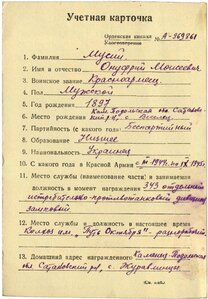 Учетная карточка
Орденская книжка № А-969261
Удостоверение
1. Фамилия Мусий
2. Имя и отчество Онуфрий Моисеевич
3. Воинское звание Красноармеец
4. Пол Мужской
5. Год рождения 1897
6. Место рождения
7. Партийность (с какого года) Беспартийный
8. Образование Низшее
9. Национальность Украинец
10. С какого года в Красной Армии с III 1944 по IX 1945
11. Место службы (наименование части) и занимаемая
должность в момент награждения 343 отдельный
истребительно-противотанковый дивизион,
замковый
12. Место службы и должность в настоящее время
Колхоз им. "Путь Октября"
13. Домашний адрес награжденного
обл. Сатановский р-н, с. Журавлинцы